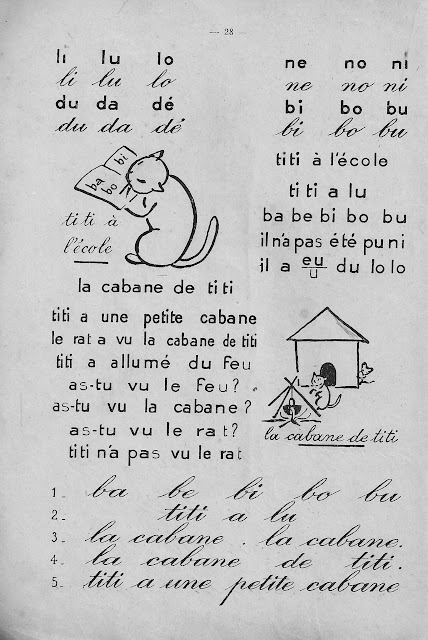 — 28 —
li lu lo
li lu lo
du da dé
du da dé
ba bi
bo
titi à
l'école
ne no ni
ne no ni
bi bo bu
bi bo bu
titi à l'école
titi a lu
ba be bi bo bu
il n'a pas été puni
il a eu du lolo
u
la cabane de titi
titi a une petite cabane
le rat a vu la cabane de titi
titi a allumé du feu
as-tu vu le feu ?
as-tu vu la cabane ?
as-tu vu le rat ?
titi n'a pas vu le rat
la cabane de titi
1_ ba be bi bo bu
2_ titi a lu
3_ la cabane . la cabane.
4_ la cabane de titi.
5_ titi a une petite cabane